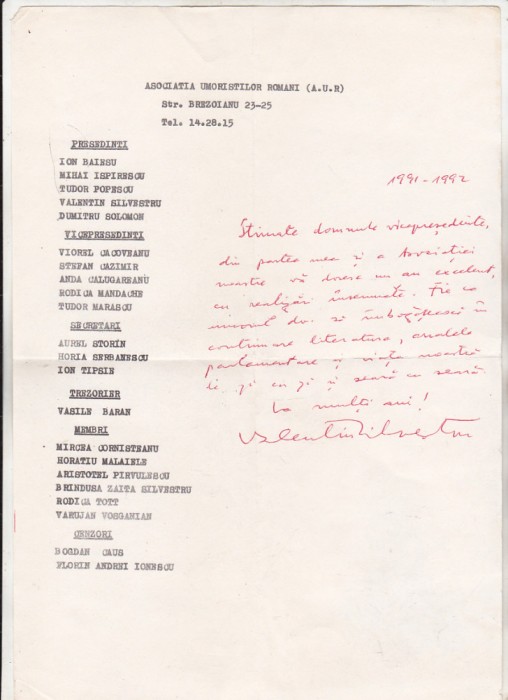 ASOCIATIA UMORISTILOR ROMANI (A.U.R)
Str. BREZOIANU 23-25
Tel. 14.28.15
PRESEDINTI
ION BAIESU
MIHAI ISPIRESCU
TUDOR POPESCU
VALENTIN SILVESTRU
DUMITRU SOLOMON
VICEPRESEDINTI
VIOREL CACOVEANU
STEFAN CAZIMIR
ANDA CALUGAREANU
RODICA MANDACHE
TUDOR MARASCU
SECRETARI
AUREL STORIN
HORIA SERBANESCU
ION TIPSIN
TREZORIER
VASILE BARAN
MEMBRI
MIRCEA CORNISTEANU
HORATIU MALAIELE
ARISTOTEL PIRVULESCU
BRINDUSA ZAITA SILVESTRU
RODICA TOTT
VARUJAN VOSGANIAN
CENZORI
BOGDAN CAUS
FLORIN ANDREI IONESCU
1991-1992
Stimate domnule vicepreședinte,
din partea mea și a Asociației
noastre vă doresc un an excelent,
cu realizări însemnate. Fie ca
umorul dv. să îmbogățească în
continuare literatura, analele
parlamentare și viața noastră
de zi cu zi și seară cu seară
La mulți ani!
Valentin Silvestru